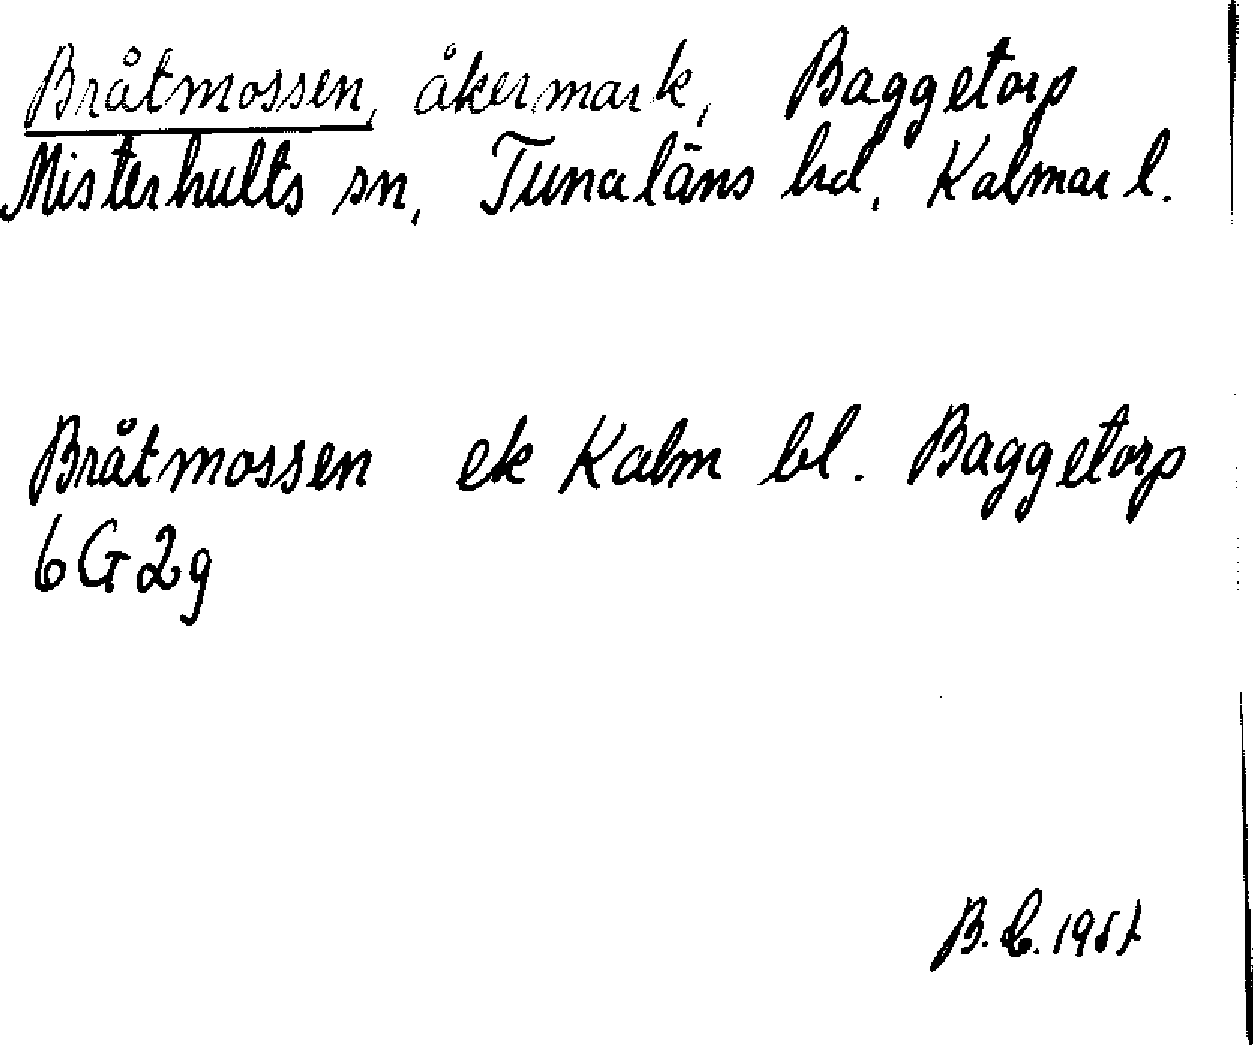 Bråtmossen, åkermark, Baggetorp
Misterhults sn, Tunaläns hd, Kalmar l.
Bråtmossen ek Kalm bl. Baggetorp
6G2g